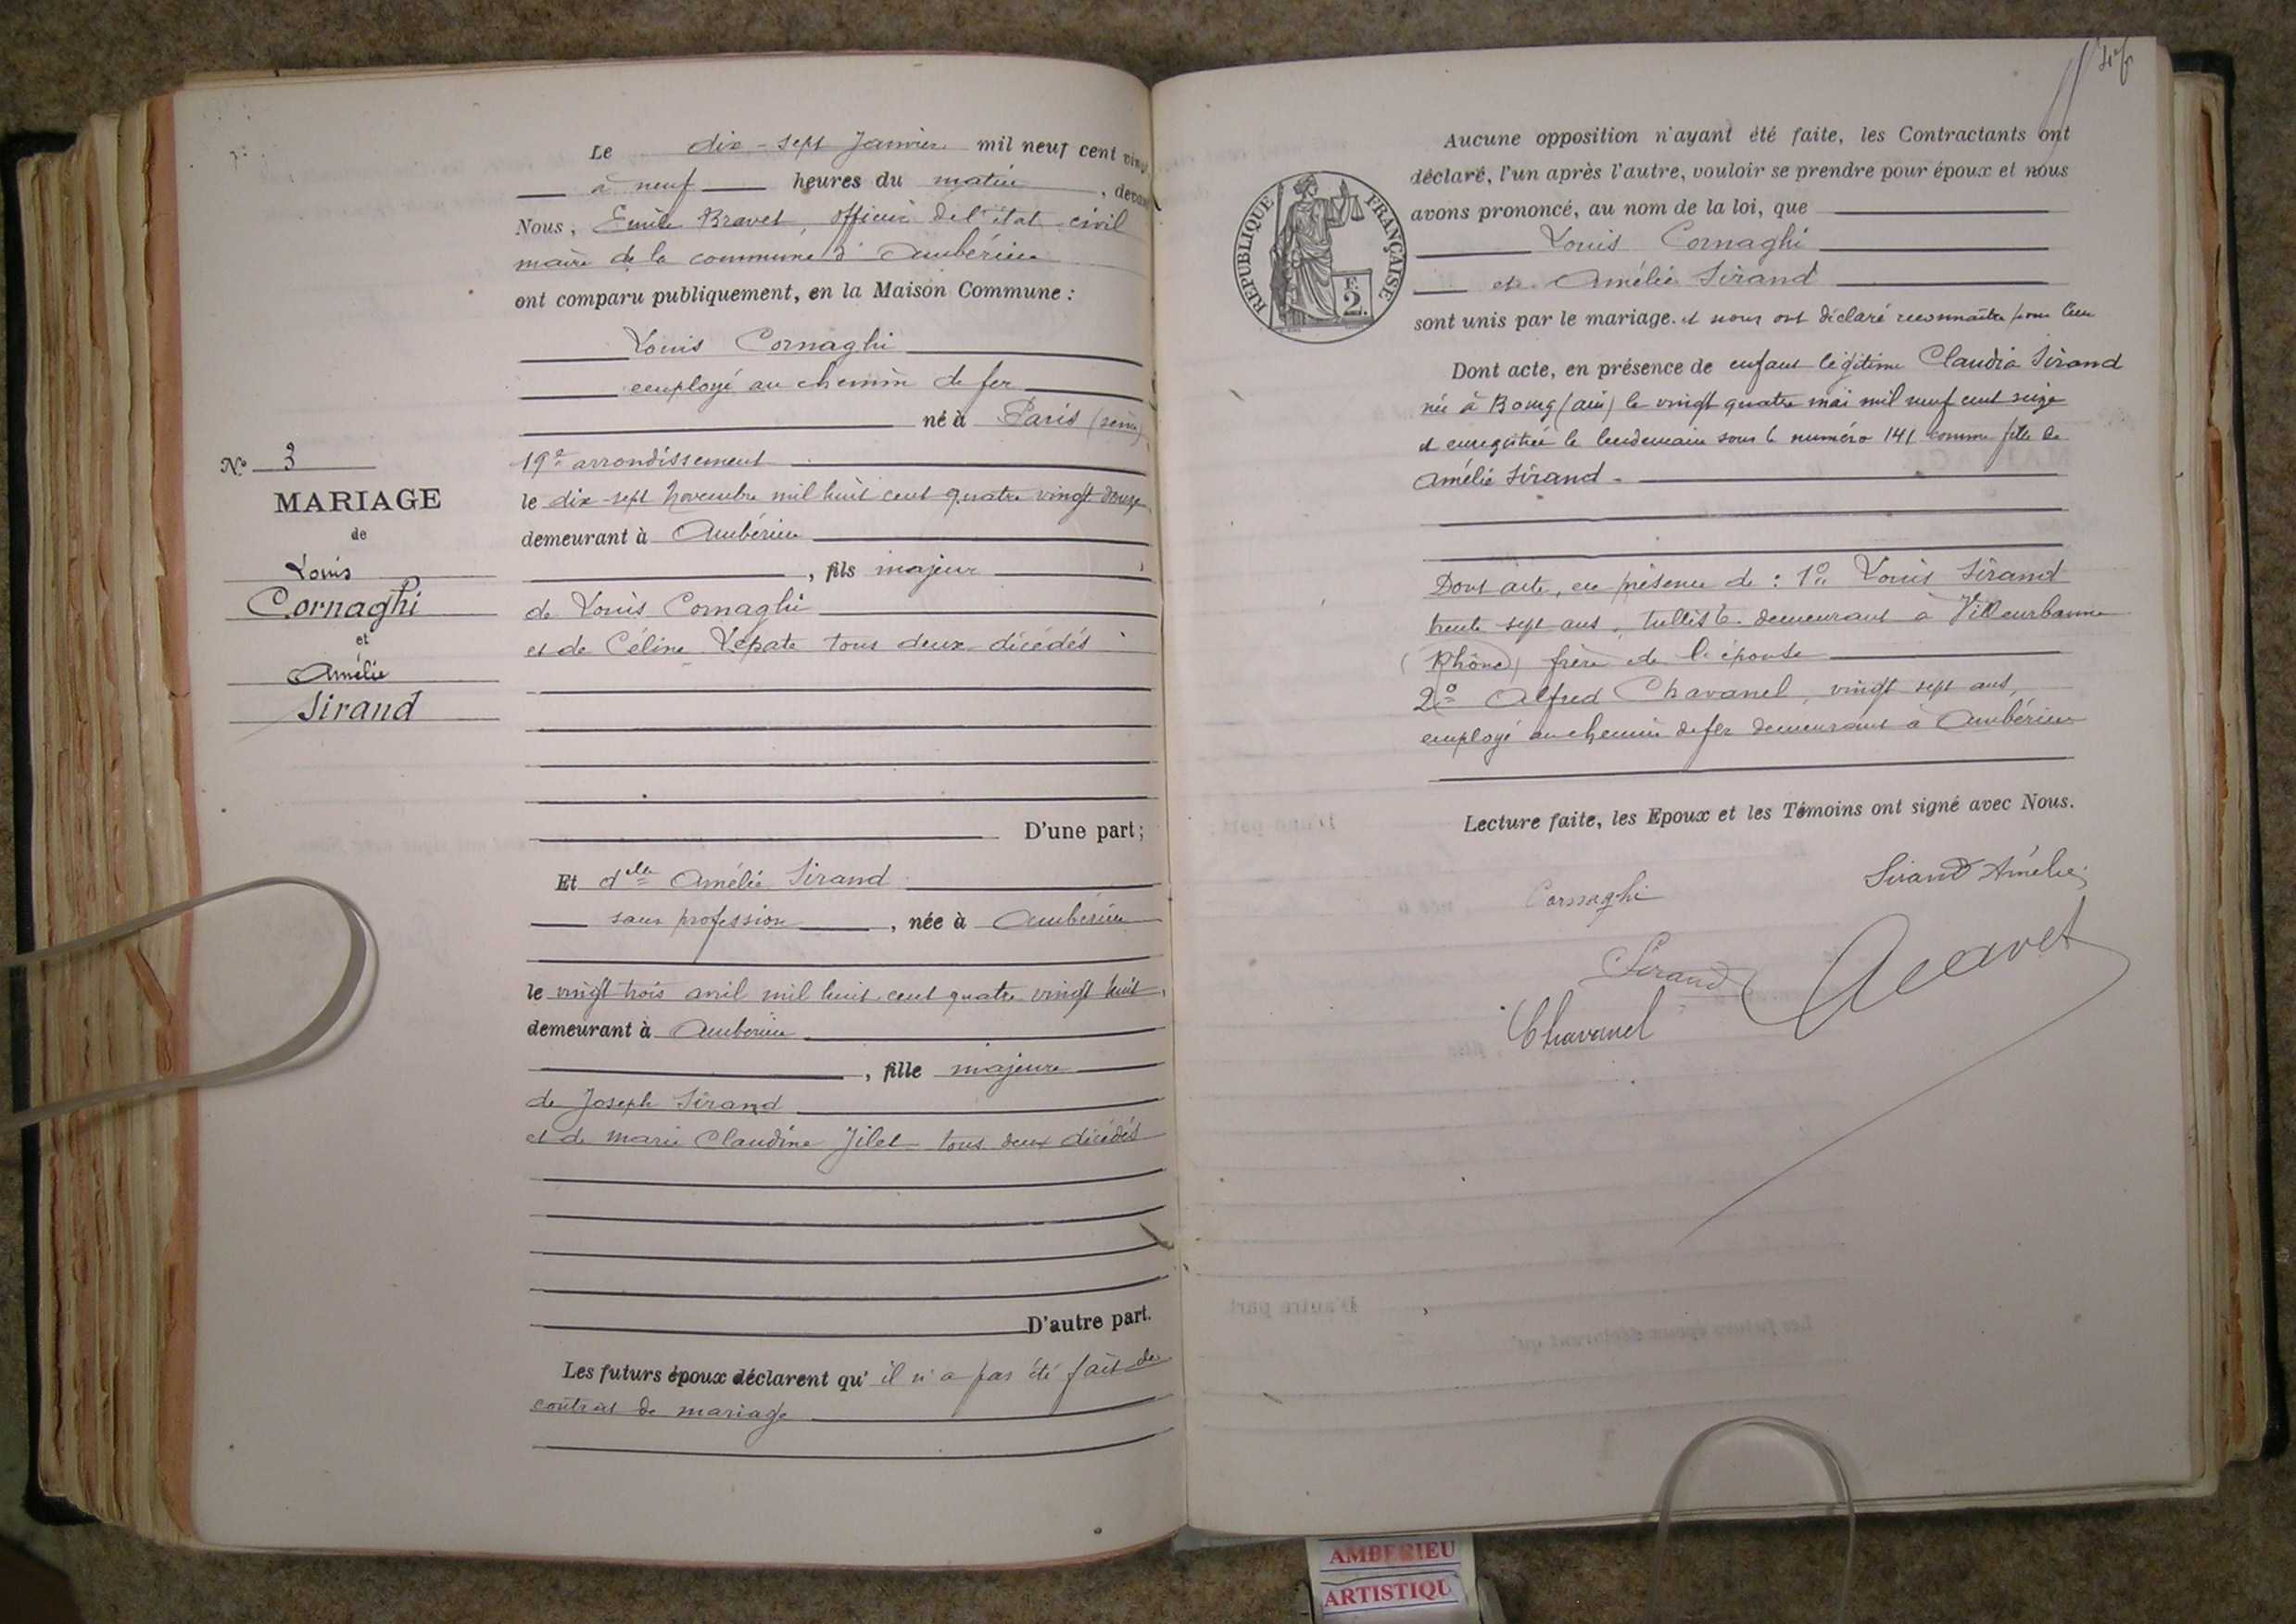 Le dix-sept Janvier mil neuf cent vingt
à neuf heures du matin, devant
Nous, Emile Bravet, officier de l'état civil
maire de la commune d'Ambérieu
ont comparu publiquement, en la Maison Commune :
Louis Cornaghi
employé au chemin de fer
né à Paris (seine)
19e arrondissement
le dix-sept novembre mil huit cent quatre vingt douze
demeurant à Ambérieu
, fils majeur
de Louis Cornaghi
et de Céline Lepate tous deux décédés
D'une part ;
Et dlle Amélie Sirand
sans profession, née à Ambérieu
le vingt trois avril mil huit cent quatre vingt huit,
demeurant à Ambérieu
, fille majeure
de Joseph Sirand
et de marie Claudine Jilet tous deux décédés
D'autre part.
Les futurs époux déclarent qu'il n'a pas été fait de
contrat de mariage
N° 3
MARIAGE
de
Louis
Cornaghi
et
Amélie
Sirand
Aucune opposition n'ayant été faite, les Contractants ont
déclaré, l'un après l'autre, vouloir se prendre pour époux et nous
avons prononcé, au nom de la loi, que
Louis Cornaghi
et Amélie Sirand
sont unis par le mariage. et nous ont déclaré reconnaître pour leur
Dont acte, en présence de enfant légitime Claudia Sirand
née à Bourg (ain) le vingt quatre mai mil neuf cent seize
et enregistrée le lendemain sous le numéro 141 comme fille de
Amélie Sirand.
Dont acte, en présence de : 1° Louis Sirand
trente sept ans, tulliste demeurant à Villeurbanne
(Rhône) frère de l'épouse
2° Alfred Chavanel, vingt sept ans,
employé au chemin de fer demeurant à Ambérieu
Lecture faite, les Epoux et les Témoins ont signé avec Nous.
Cornaghi
Sirand Amélie
Sirand
Chavanel
REPUBLIQUE FRANÇAISE
F.
2.
AMBERIEU
ARTISTIQU